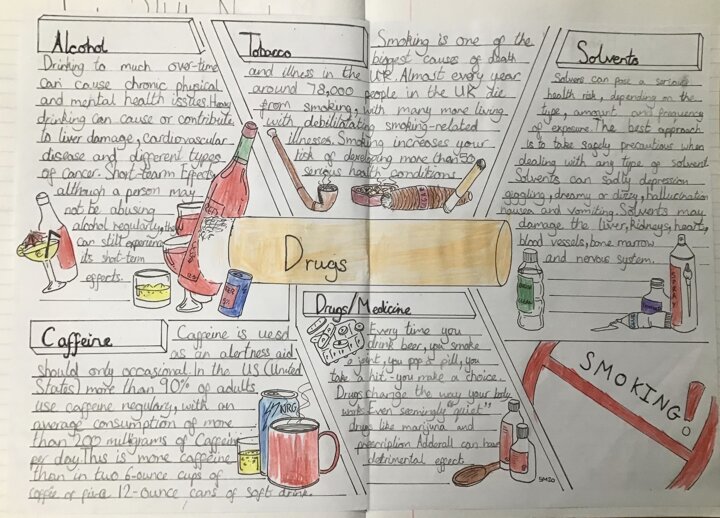 Alcohol
Drinking to much over-time
can cause chronic physical
and mental health issues. Heavy
drinking can cause or contribute
to liver damage, cardiovascular
disease and different types
of cancer. Short-tearm Effects
although a person may
not be abusing
alcohol regularly, they
can still experience
its short-term
effects.
Tobacco
Smoking is one of the
biggest causes of death
and illness in the UK. Almost every year
around 78,000 people in the UK die
from smoking, with many more living
with debilitating smoking-related
illnesses. Smoking increases your
risk of developing more than 50
serious health conditions
Solvents
Solvers can pose a serious
health risk, depending on the
type, amount and frequency
of exposure. The best approach
is to take safely precautions when
dealing with any type of solvent
Solvents can sadly depression
giggling, dreamy or dizzy, hallucination
nausea and vomiting. Solvents may
damage the liver, Kidneys, heart,
blood vessels, bone marrow
and nervous system.
Drugs
SPRAY
Caffeine
Caffeine is uesd
as an alertness aid
should only occasional. In the US (United
States) more than 90% of adults
use caffeine regulary, with an
average consumption of more
than 200 milligrams of Caffeine
per day. This is more caffeine
than in two 6-ounce cups of
coffee or five 12-ounce cans of soft drink.
Drugs/Medicine
Every time you
drink beer, you smoke
a joint, you pop a pill, you
take a hit - you make a choice.
Drugs change the way your body
works. Even seemingly "quiet"
drugs like marijuna and
prescription Adderall can have
detrimental effect
SM20
SMOKING!